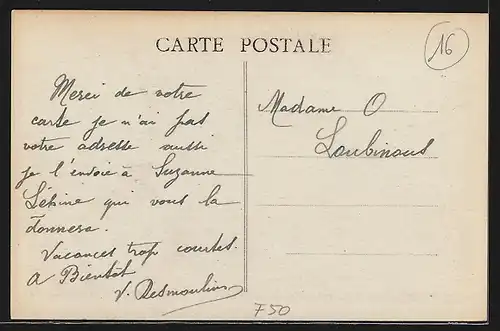 CARTE POSTALE
16
Merci de votre
carte je n'ai pas
votre adresse aussi
je l'envoie à Suzanne
Lépine qui vous la
donnera.
Vacances trop courtes.
A Bientôt
V. Desmoulins
Madame O
Loubinous
F50